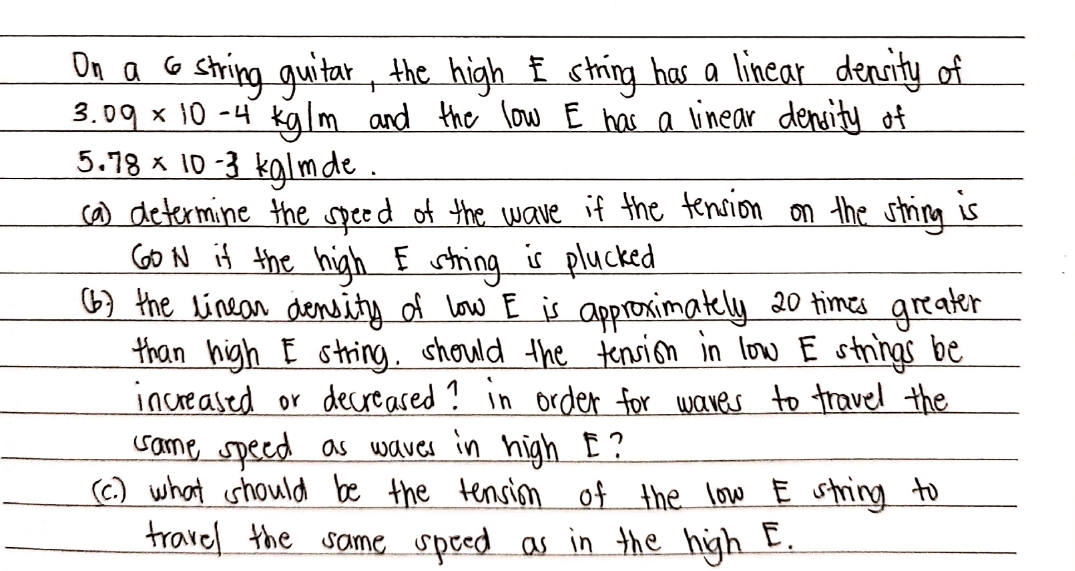 On a 6 string guitar, the high E string has a linear density of
3.09 x 10 -4 kg/m and the low E has a linear density of
5.78 x 10 -3 kg/mde.
(a) determine the speed of the wave if the tension on the string is
60 N if the high E string is plucked
(b) the linear density of low E is approximately 20 times greater
than high E string. should the tension in low E strings be
increased or decreased? in order for waves to travel the
same speed as waves in high E?
(c.) what should be the tension of the low E string to
travel the same speed as in the high E.